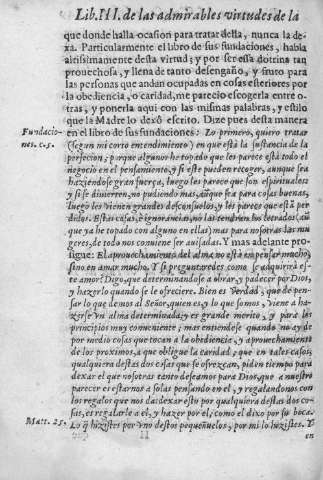 Lib. III. de las admirables virtudes de la
que donde halla ocasion para tratar della, nunca la de-
xa. Particularmente el libro de sus fundaciones, habla
altissimamente desta virtud; y por ser essa doctrina tan
prouechosa, y llena de tanto desengaño, y fruto para
las personas que andan ocupadas en cosas esteriores por
la obediencia, o caridad, me parecio escogerla entre o-
tras, y ponerla aqui con las mismas palabras, y estilo
que la Madre lo dexò escrito. Dize pues desta manera
Fundacio-
nes. c. 5.
en el libro de sus fundaciones: Lo primero, quiero tratar
(segun mi corto entendimiento) en que està la sustancia de la
perfecion; porque algunos he topado que les parece està todo el
negocio en el pensamiento, y si este pueden recoger, aunque sea
haziendose gran fuerça, luego les parece que son espirituales;
y si se diuierten, no pudiendo mas, aunque sea para cosas buenas,
luego les vienen grandes desconsuelos, y les parece que està per-
didos. Estas cosas, è ignorancias, no las tendran los letrados (aũ
que ya he topado con alguno en ellas) mas para nosotras las mu-
geres, de todo nos conuiene ser auisadas. Y mas adelante pro-
sigue: El aprouechamiento del alma no està en pensar mucho,
sino en amar mucho. Y si preguntaredes como se adquirirà es-
te amor? Digo, que determinandose a obrar, y padecer por Dios,
y hazerlo quando se le ofreciere. Bien es Verdad, que de pen-
sar lo que demos al Señor, quien es, y lo que somos, viene a ha-
zerse vn alma determinada, y es grande merito, y para los
principios muy conueniente; mas entiendese quando no ay de
por medio cosas que tocan a la obediencia, y aprouechamiento
de los proximos, a que obligue la caridad; que en tales casos,
qualquiera destas dos cosas que se ofrezcan, piden tiempo para
dexar el que nosotras tanto deseamos para Dios, que a nuestro
parecer es estarnos a solas pensando en el, y regalandonos con
los regalos que nos da: dexar esto por qualquiera destas dos co-
sas, es regalarle a el, y hazer por el; como el dixo por su boca.
Matt. 25.
Lo q̃ hizistes por vno destos pequeñuelos, por mi lo hizistes. Y
en